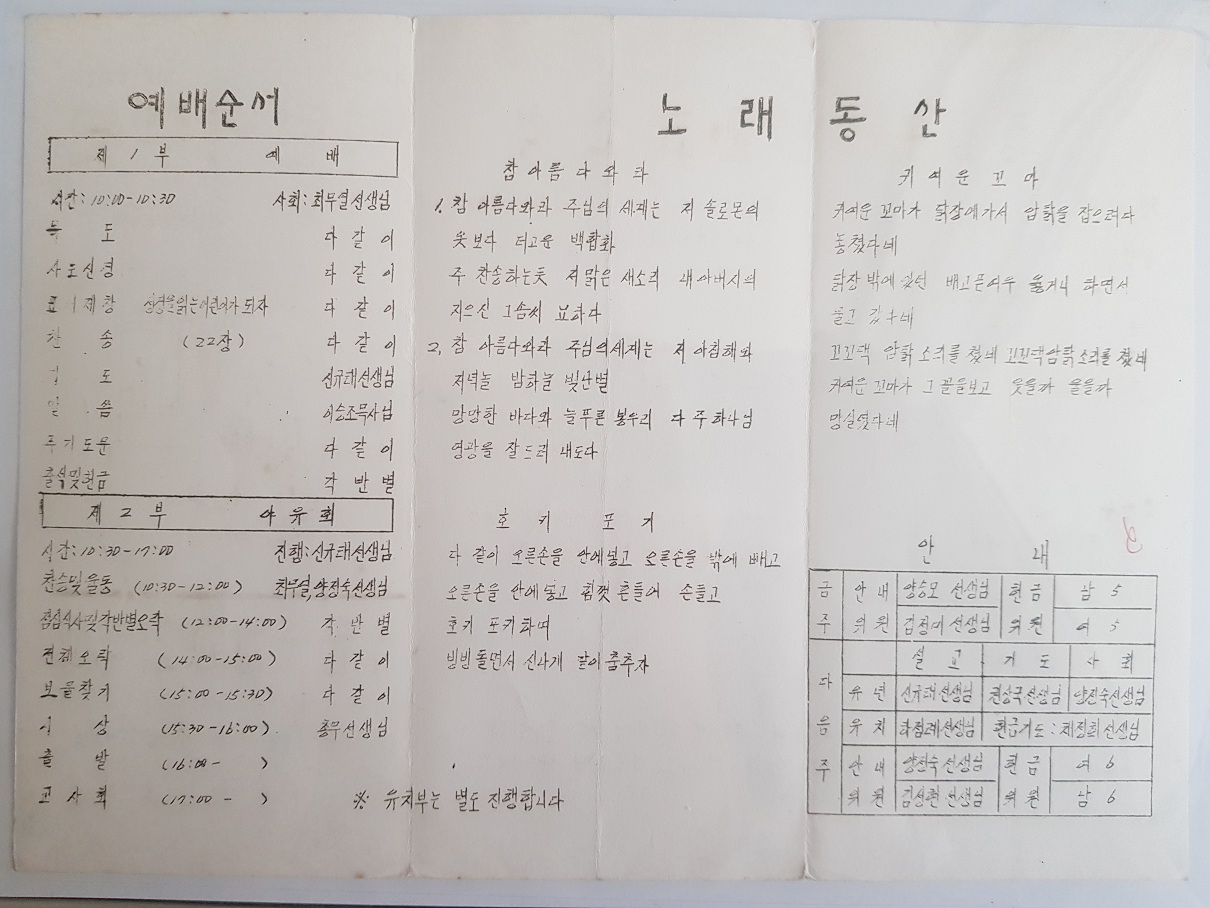 예배순서
제 1 부 예 배
시간: 10:00-10:30 사회: 최무열선생님
묵 도 다 같 이
사도신경 다 같 이
표어제창 성경을읽는어린이가 되자 다 같 이
찬 송 (22장) 다 같 이
기 도 신규태선생님
말 씀 이승조목사님
주기도문 다 같 이
출석및헌금 각 반 별
제 2 부 야 유 회
시간: 10:30-17:00 진행: 신규태선생님
찬송및율동 (10:30-12:00) 최무열,양진숙선생님
점심식사및각반별오락 (12:00-14:00) 각 반 별
전체오락 (14:00-15:00) 다 같 이
보물찾기 (15:00-15:30) 다 같 이
시 상 (15:30-16:00) 총무선생님
출 발 (16:00- )
교 사 회 (17:00 - ) ※ 유치부는 별도 진행합니다
노 래 동 산
참 아 름 다 와 라
1. 참 아름다와라 주님의 세계는 저 솔로몬의
옷보다 더고운 백합화
주 찬송하는듯 저맑은 새소리 내아버지의
지으신 그솜씨 묘하다
2. 참 아름다와라 주님의세계는 저 아침해와
저녁놀 밤하늘 빛난별
망망한 바다와 늘푸른 봉우리 다 주하나님
영광을 잘드러 내도다
호 키 포 키
다 같이 오른손을 안에넣고 오른손을 밖에 빼고
오른손을 안에넣고 힘껏 흔들어 손들고
호키 포키하며
빙빙돌면서 신나게 같이춤추자
귀 여 운 꼬 마
귀여운 꼬마가 닭장에가서 암탉을 잡으려다
놓쳤다네
닭장 밖에 있던 배고픈여우 옳거니 하면서
물고 갔다네
꼬꼬댁 암탉 소리를 쳤네 꼬꼬댁암탉소리를 쳤네
귀여운 꼬마가 그 꼴을보고 웃을까 울을까
망실였다네
안 내
금 주 안내 위원 양승모 선생님 헌금 위원 남 5
김정미선생님 여 5
다 음 주 설 교 기 도 사 회
유 년 신규태선생님 권상국선생님 양진숙선생님
유 치 하점례선생님 헌금기도: 채정희선생님
안 내 양진숙선생님 헌 금 여 6
위 원 김성현선생님 위 원 남 6